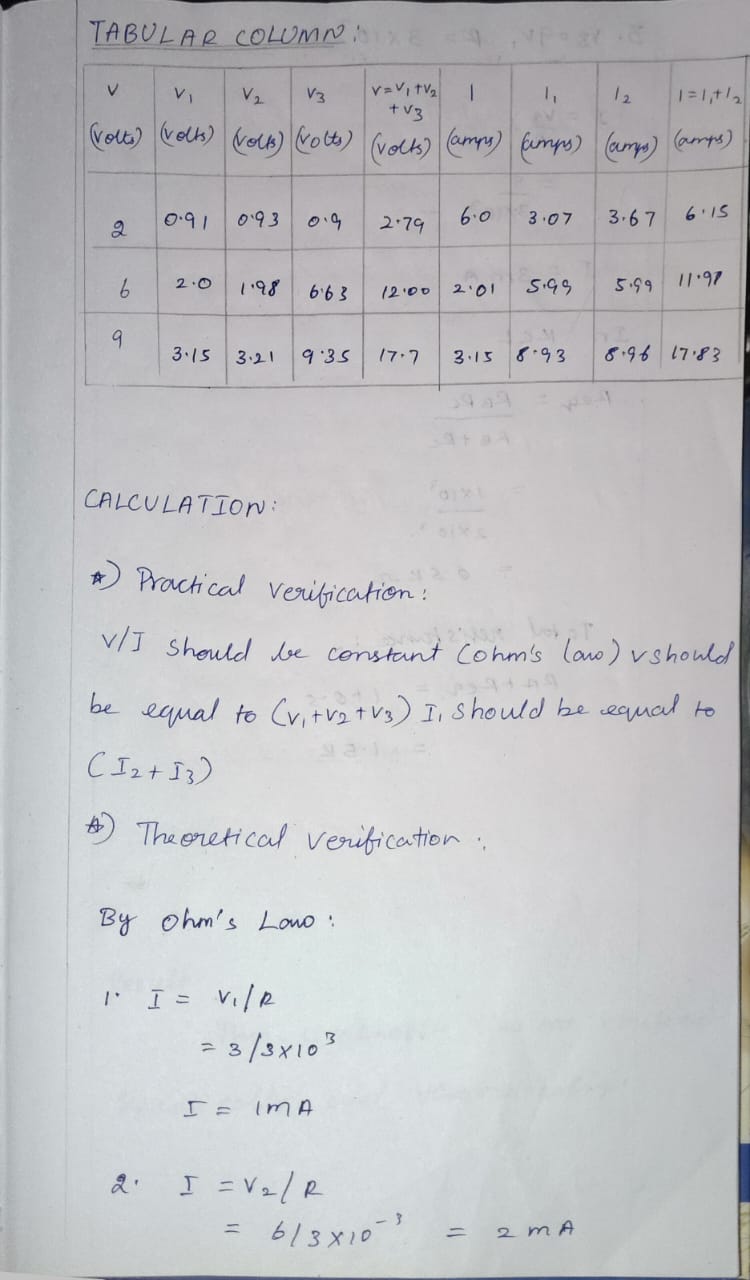 TABULAR COLUMN:
V V1 V2 V3 V=V1+V2 I I1 I2 I=I1+I2
+V3
(volts) (volts) (volts) (volts) (volts) (amps) (amps) (amps) (amps)
2 0.91 0.93 0.9 2.79 6.0 3.07 3.67 6.15
6 2.0 1.98 6.63 12.00 2.01 5.99 5.99 11.97
9 3.15 3.21 9.35 17.7 3.15 8.93 8.96 17.83
CALCULATION:
*) Practical verification:
V/I should be constant (ohm's law) v should
be equal to (V1+V2+V3) I, should be equal to
(I2+I3)
*) Theoretical verification:
By ohm's Law:
1. I = V1/R
= 3/3x10³
I = 1mA
2. I = V2/R
= 6/3x10⁻³ = 2mA